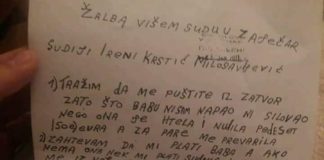 ŽALBA VIŠEM SUDU U ZAJEČAR
SUDIJI IRENI KRSTIĆ MILOSAVLJEVIĆ
1) TRAŽIM DA ME PUSTITE IZ ZATVOR
ZATO ŠTO BABU NISAM NAPAO NI SILOVAO
NEGO ONA JE HTELA I NUDILA PEDESET
(50) EURA A ZA PARE ME PREVARILA
2) ZAHTEVAM DA MI PLATI BABA A AKO
NEMA ONA NEK MI PLATI